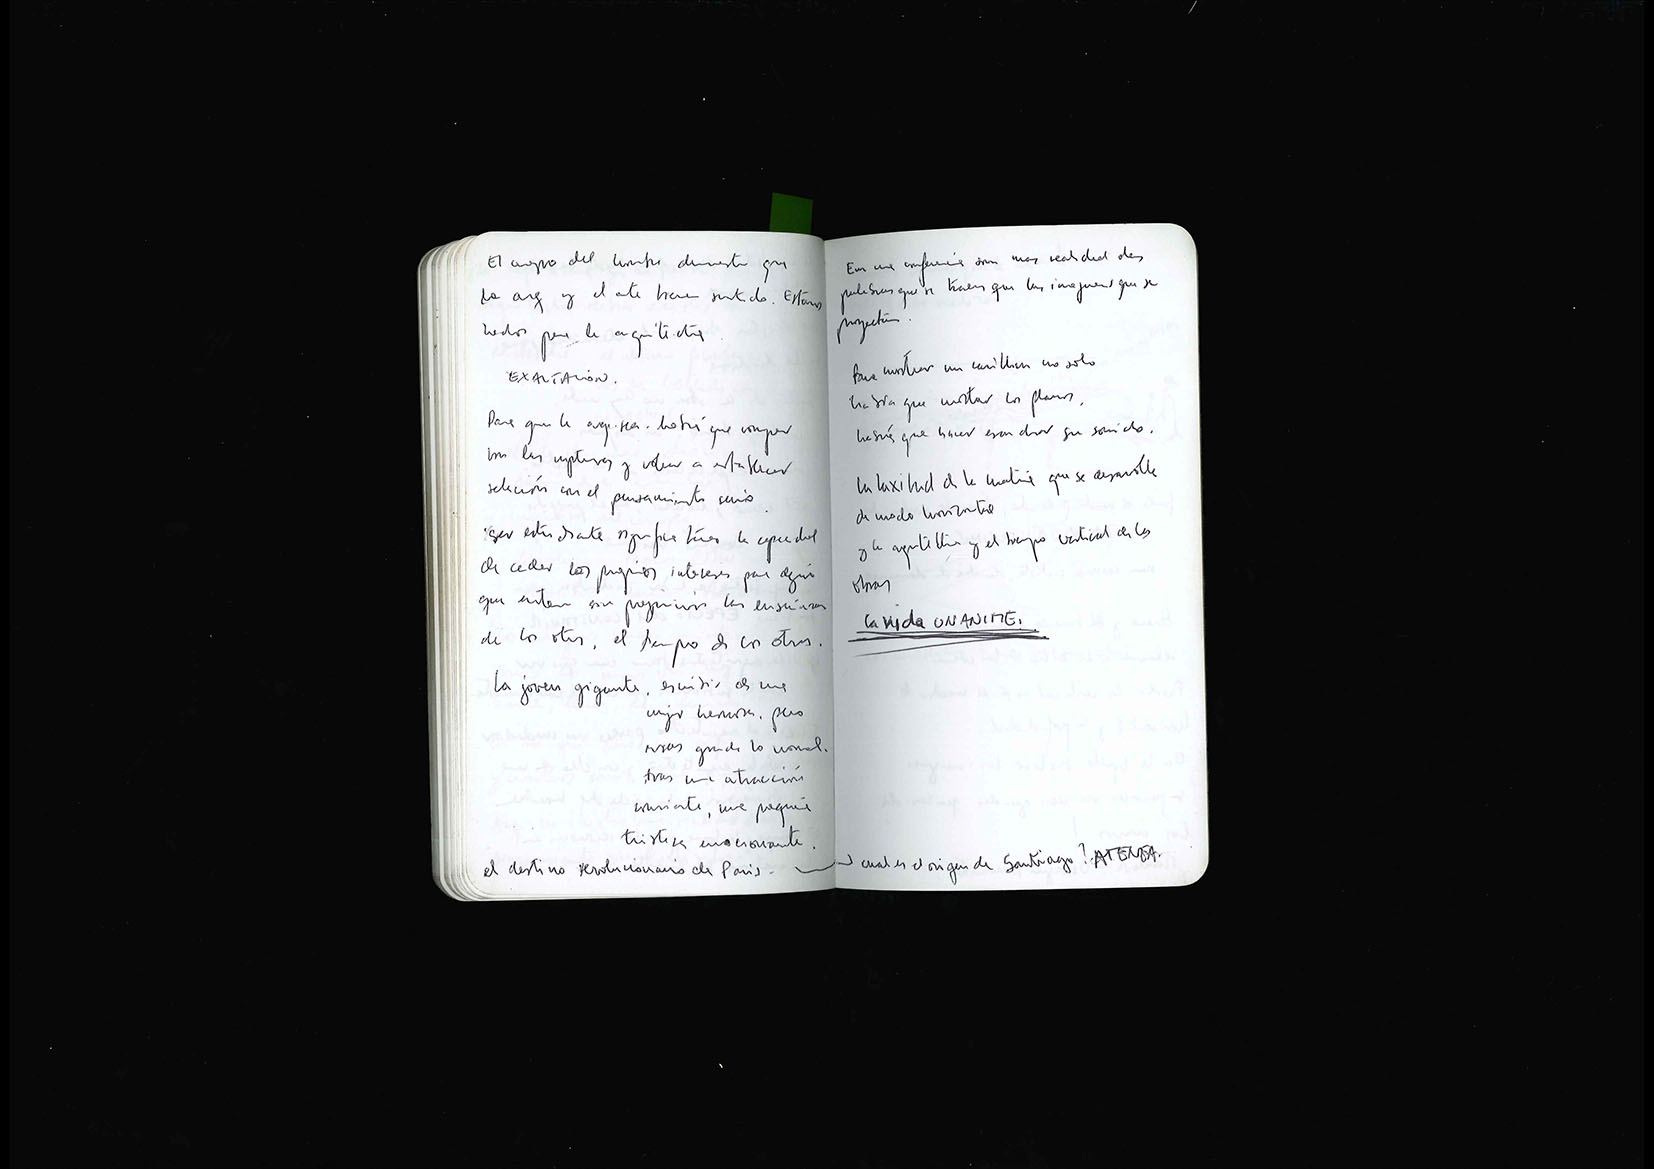 El cuerpo del hombre demuestra que
la arq y el arte tienen sentido. Estamos
hechos para la arquitectura
EXALTACIÓN.
Para que la arq. sea. habrá que romper
con las rupturas y volver a establecer
relación con el pensamiento
Ser estudiante significa tener la capacidad
de ceder los propios intereses para
que entren sin prejuicios las enseñanzas
de los otros, el tiempo de los otros.
La joven gigante, de una
mujer hermosa, pero
mas grande lo normal.
tras una atracción
una pequeña
tristeza emocionante.
el destino revolucionario de Paris.
En una conferencia son mas realidad las
palabras que se traen que las imagenes que se
proyectan.
Para mostrar un carillon no solo
habría que mostrar los planos,
habría que hacer escuchar su sonido.
La laxitud de la materia que se desarrolla
de modo horizontal
y la arquitectura y el tiempo vertical de las
obras
La vida UNANIME.
cual es el origen de Santiago? ATENEA.